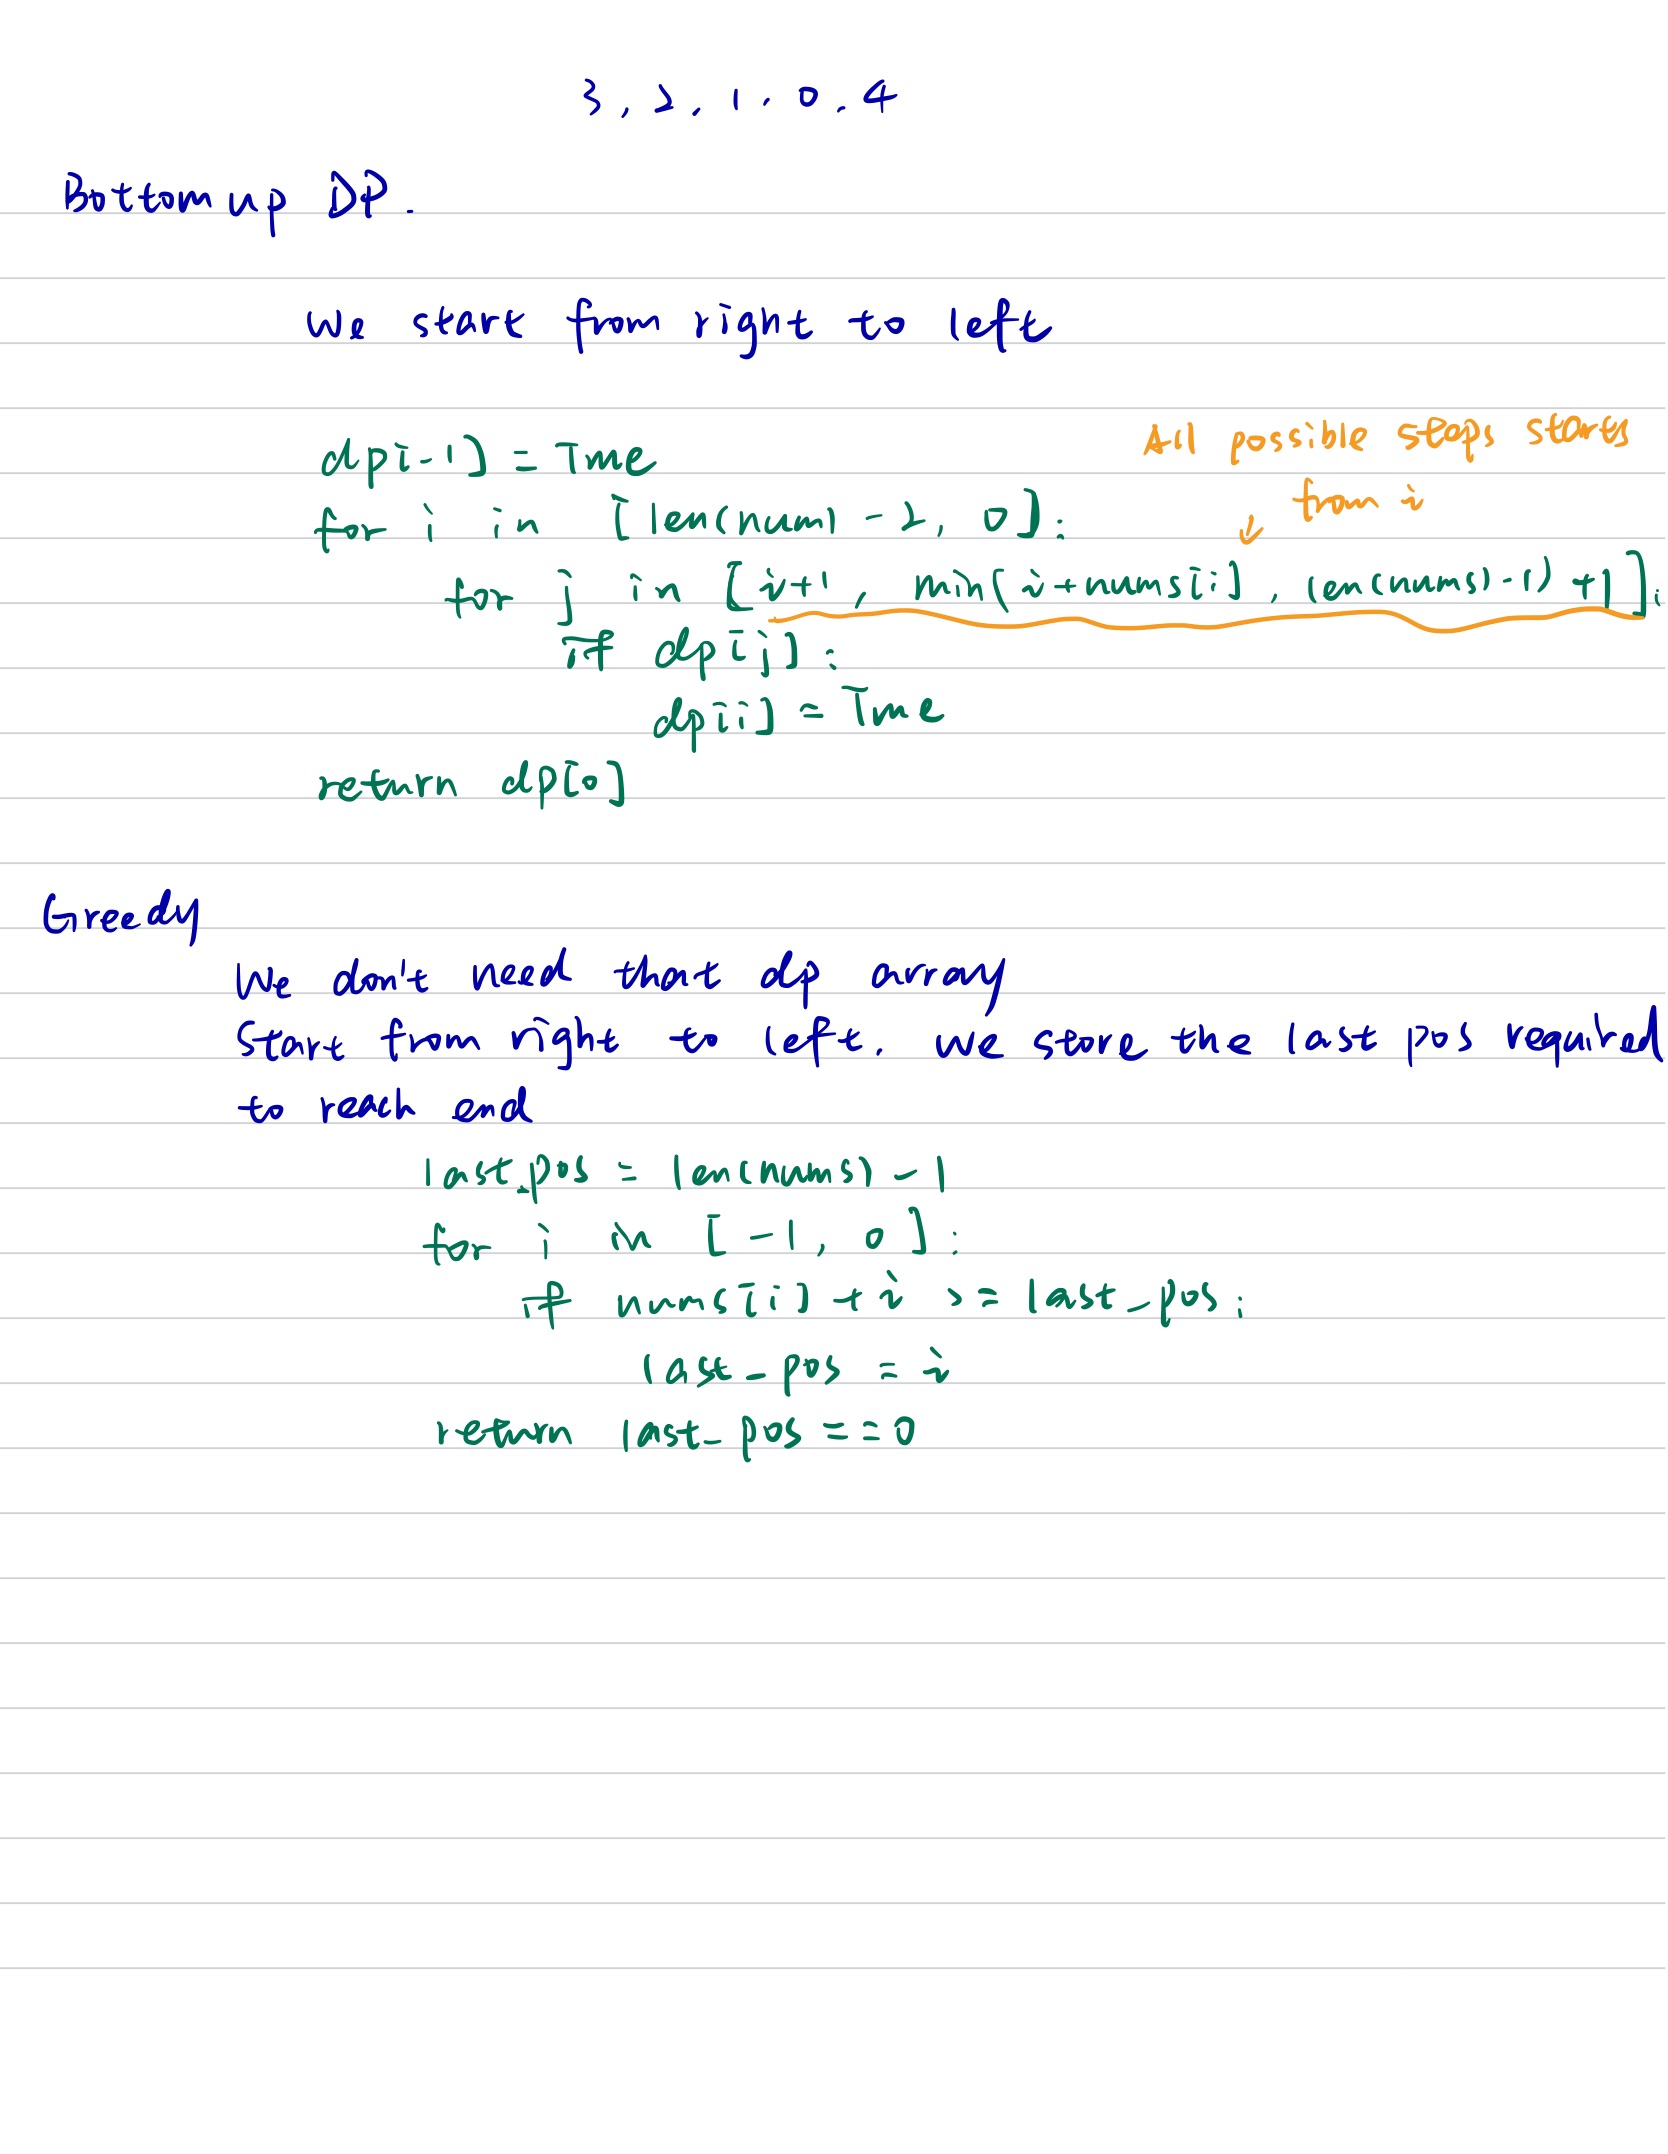 3, 2, 1, 0, 4
Bottom up DP.
We start from right to left
All possible steps starts
from i
dp[-1] = True
for i in [len(num) - 2, 0]:
for j in [i+1, min(i+nums[i], len(nums)-1) +1]:
if dp[j]:
dp[i] = True
return dp[0]
Greedy
We don't need that dp array
Start from right to left. we store the last pos required
to reach end
last_pos = len(nums) - 1
for i in [-1, 0]:
if nums[i] + i >= last_pos:
last_pos = i
return last_pos == 0